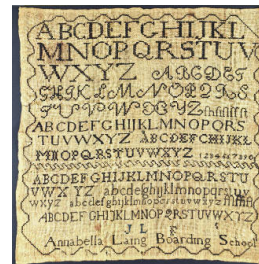 ABCDEFGHIJKL
MNOPQRSTUV
WXYZ ABCDEF
GHIKLMNOPQRS
TUVWXYZ
ABCDEFGHIJKLMNOPQRS
TUVWXYZ ABCDEFGHIJKL
MNOPQRSTUVWXYZ
ABCDEFGHIJKLMNOPQRSTU
VWXYZ abcdefghijklmnopqrstuv
wxyz abcdefghijklmnopqrstuvwxyz
ABCDEFGHIJKLMNOPQRSTUVWXYZ
J L F S
Annabella Laing Boarding School